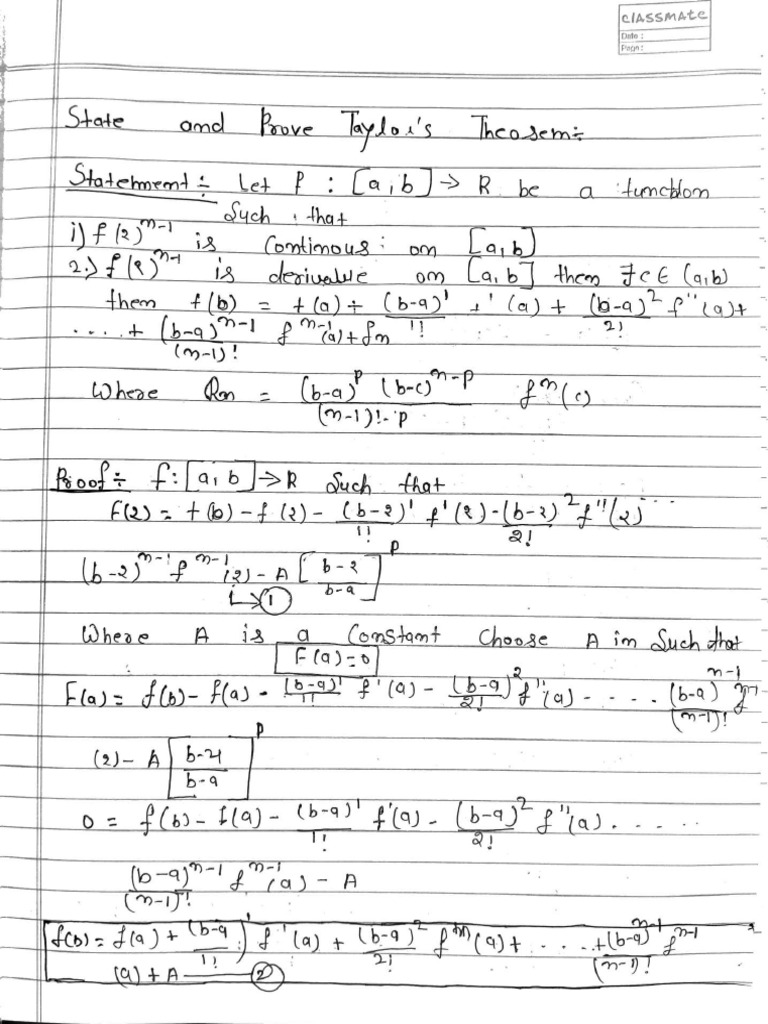 CLASSMATE
Date :
Page :
State and Prove Taylor's Theorem÷
Statement ÷ Let f : [a,b] → R be a function
Such that
i) f(2)^n-1 is Continous: on [a,b]
2.) f(2)^n-1 is derivalve on [a,b] then ∃ c ∈ (a,b)
then f(b) = f(a) + (b-a)'/1! f'(a) + (b-a)^2/2! f''(a) +
.... + (b-a)^n-1/(n-1)! f^n-1(a) + Rn
Where Rn = (b-a)^p (b-c)^n-p/(n-1)!-p f^n(c)
Proof÷ f: [a,b] → R Such that
F(2) = f(b) - f(2) - (b-2)'/1! f'(2) - (b-2)^2/2! f''(2) ...
(b-2)^n-1 f^n-1(2) - A [b-2/b-a]^p
↳ ①
Where A is a Constant Choose A in Such that
F(a)=0
F(a) = f(b) - f(a) - (b-a)'/1! f'(a) - (b-a)^2/2! f''(a) - .... (b-a)^n-1/(n-1)! f^n-1
(2) - A [b-a/b-a]^p
0 = f(b) - f(a) - (b-a)'/1! f'(a) - (b-a)^2/2! f''(a) . .....
(b-a)^n-1/(n-1)! f^n-1(a) - A
f(b) = f(a) + (b-a/1!)' f'(a) + (b-a)^2/2! f'''(a) + .... + (b-a)^n-1/(n-1)! f^n-1
(a) + A — ②